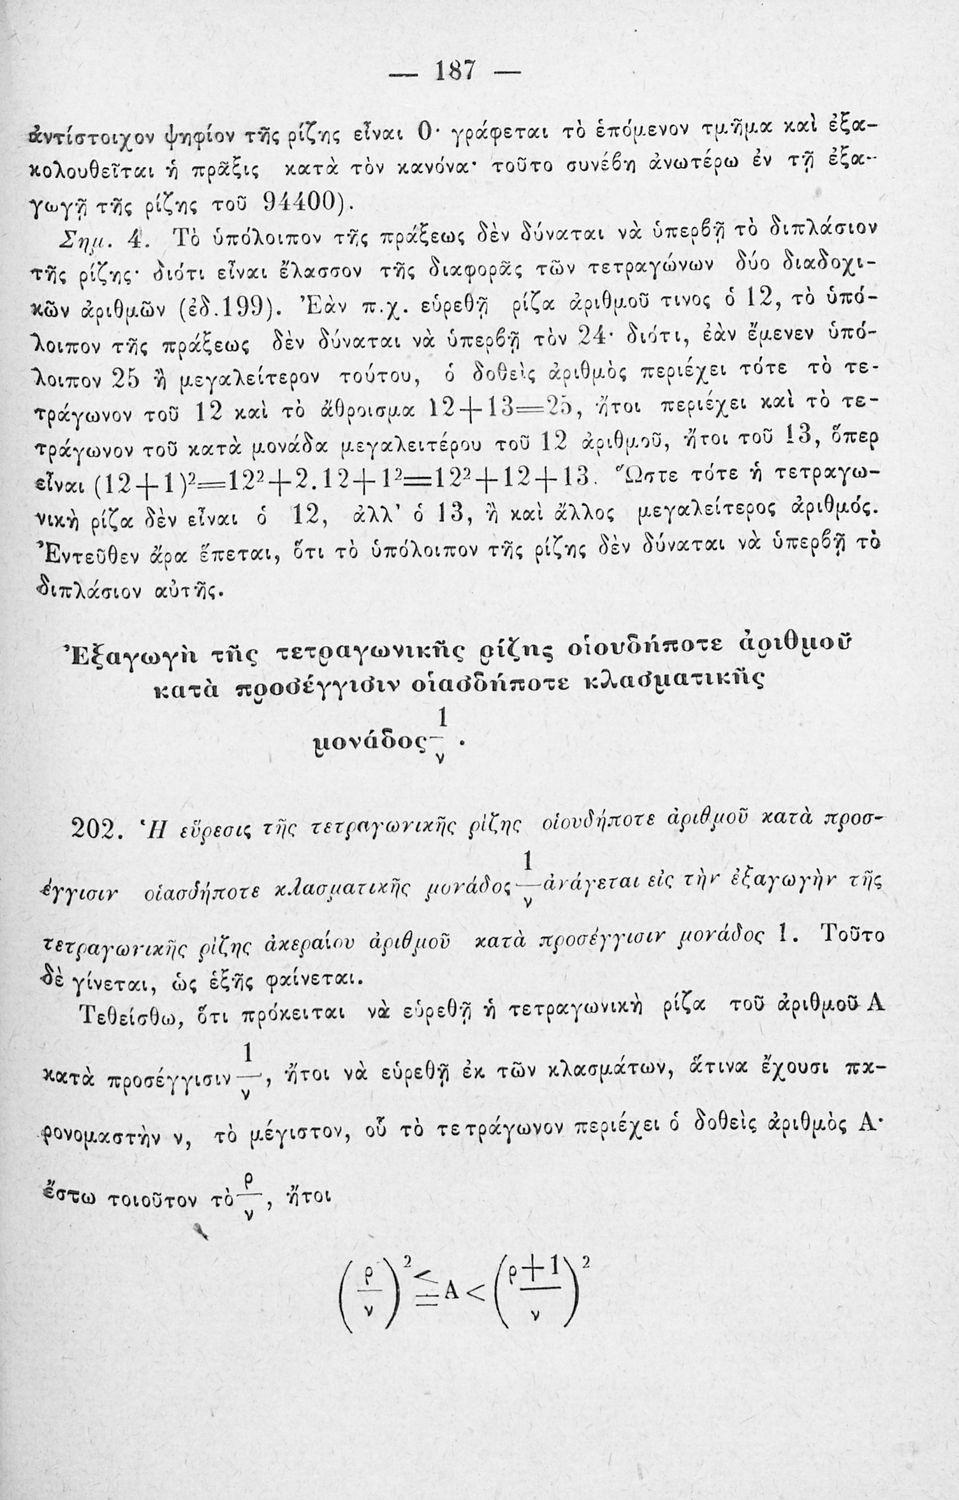 — 187 —
ἀντίστοιχον ψηφίον τῆς ρίζης εἶναι 0· γράφεται τὸ ἑπόμενον τμῆμα καὶ ἐξα-
κολουθεῖται ἡ πρᾶξις κατὰ τὸν κανόνα· τοῦτο συνέβη ἀνωτέρω ἐν τῇ ἐξα-
γωγῇ τῆς ρίζης τοῦ 94400).
Σημ. 4. Τὸ ὑπόλοιπον τῆς πράξεως δὲν δύναται νὰ ὑπερβῇ τὸ διπλάσιον
τῆς ρίζης· διότι εἶναι ἔλασσον τῆς διαφορᾶς τῶν τετραγώνων δύο διαδοχι-
κῶν ἀριθμῶν (ἐδ.199). Ἐὰν π.χ. εὑρεθῇ ρίζα ἀριθμοῦ τινος ὁ 12, τὸ ὑπό-
λοιπον τῆς πράξεως δὲν δύναται νὰ ὑπερβῇ τὸν 24· διότι, ἐὰν ἔμενεν ὑπό-
λοιπον 25 ἢ μεγαλείτερον τούτου, ὁ δοθεὶς ἀριθμὸς περιέχει τότε τὸ τε-
τράγωνον τοῦ 12 καὶ τὸ ἄθροισμα 12+13=25, ἤτοι περιέχει καὶ τὸ τε-
τράγωνον τοῦ κατὰ μονάδα μεγαλειτέρου τοῦ 12 ἀριθμοῦ, ἤτοι τοῦ 13, ὅπερ
εἶναι (12+1)²=12²+2.12+1²=12²+12+13. Ὥστε τότε ἡ τετραγω-
νικὴ ρίζα δὲν εἶναι ὁ 12, ἀλλ' ὁ 13, ἢ καὶ ἄλλος μεγαλείτερος ἀριθμός.
Ἐντεῦθεν ἄρα ἕπεται, ὅτι τὸ ὑπόλοιπον τῆς ρίζης δὲν δύναται νὰ ὑπερβῇ τὸ
διπλάσιον αὐτῆς.
Ἐξαγωγὴ τῆς τετραγωνικῆς ρίζης οἱουδήποτε ἀριθμοῦ
κατὰ προσέγγισιν οἱασδήποτε κλασματικῆς
μονάδος 1/ν .
202. Ἡ εὕρεσις τῆς τετραγωνικῆς ρίζης οἱουδήποτε ἀριθμοῦ κατὰ προσ-
έγγισιν οἱασδήποτε κλασματικῆς μονάδος 1/ν ἀνάγεται εἰς τὴν ἐξαγωγὴν τῆς
τετραγωνικῆς ρίζης ἀκεραίου ἀριθμοῦ κατὰ προσέγγισιν μονάδος 1. Τοῦτο
δὲ γίνεται, ὡς ἑξῆς φαίνεται.
Τεθείσθω, ὅτι πρόκειται νὰ εὑρεθῇ ἡ τετραγωνικὴ ρίζα τοῦ ἀριθμοῦ Α
κατὰ προσέγγισιν 1/ν, ἤτοι νὰ εὑρεθῇ ἐκ τῶν κλασμάτων, ἅτινα ἔχουσι πα-
ρονομαστὴν ν, τὸ μέγιστον, οὗ τὸ τετράγωνον περιέχει ὁ δοθεὶς ἀριθμὸς Α·
ἔστω τοιοῦτον τὸ ρ/ν, ἤτοι
(ρ/ν)² ≦ Α < ((ρ+1)/ν)²